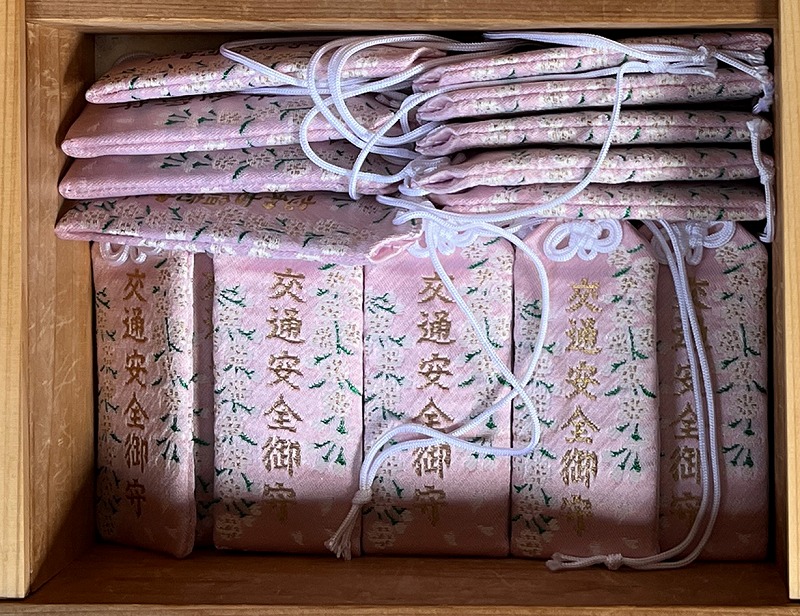 交通安全御守
交通安全御守
交通安全御守
交通安全御守
交通安全御守